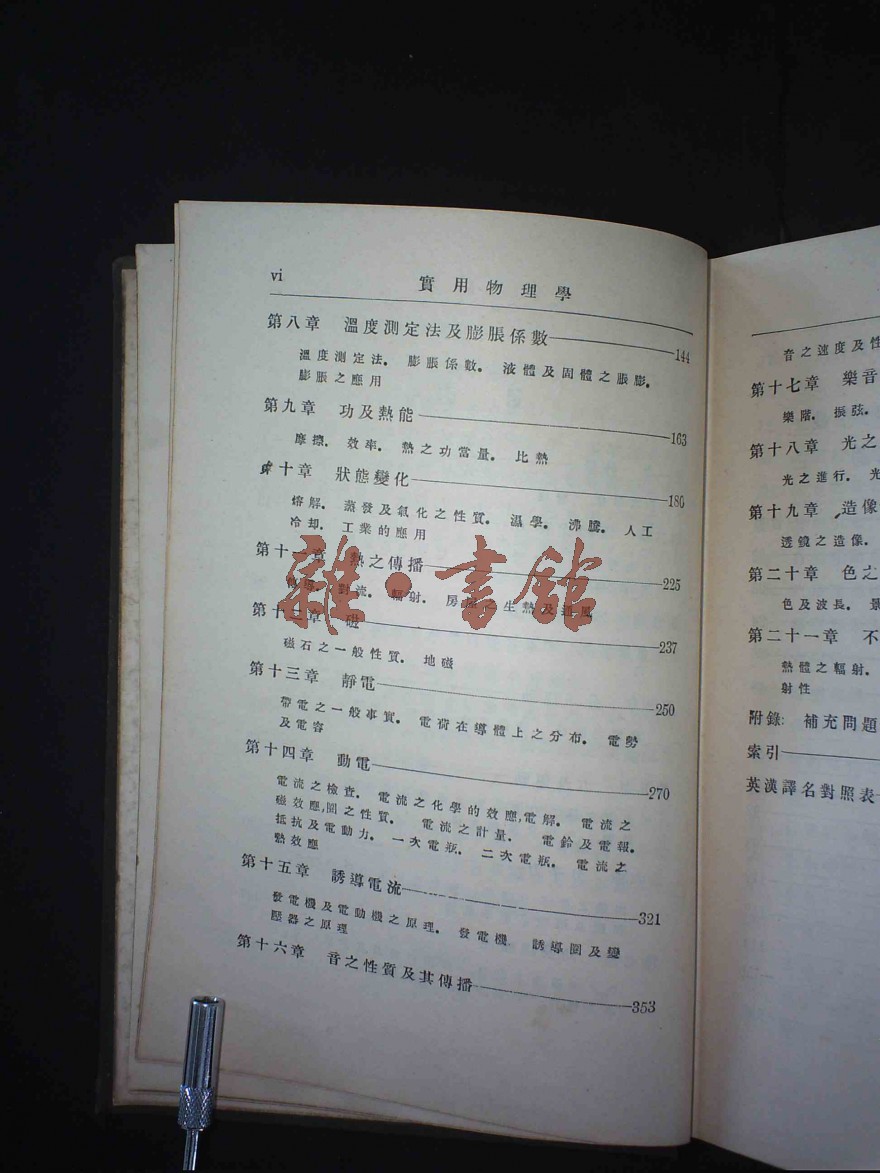 vi 實用物理學
第八章 溫度測定法及膨脹係數 144
溫度測定法. 膨脹係數. 液體及固體之脹膨.
膨脹之應用
第九章 功及熱能 163
摩擦. 效率. 熱之功當量. 比熱
十章 狀態變化 180
熔解. 蒸發及氣化之性質. 濕學. 沸騰. 人工
冷却. 工業的應用
第十一章 熱之傳播 225
對流. 輻射. 房屋之生熱及通風
第十二章 磁 237
磁石之一般性質. 地磁
第十三章 靜電 250
帶電之一般事實. 電荷在導體上之分布. 電勢
及電容
第十四章 動電 270
電流之檢查. 電流之化學的效應,電解. 電流之
磁效應,圈之性質. 電流之計量. 電鈴及電報.
抵抗及電動力. 一次電瓶. 二次電瓶. 電流之
熱效應
第十五章 誘導電流 321
發電機及電動機之原理. 發電機 誘導圈及變
壓器之原理
第十六章 音之性質及其傳播 353
雜·書館
音之速度及性
第十七章 樂音
樂階. 振弦.
第十八章 光之
光之進行. 光
第十九章 造像
透鏡之造像.
第二十章 色之
色及波長. 景
第二十一章 不
熱體之輻射.
射性
附錄: 補充問題
索引
英漢譯名對照表